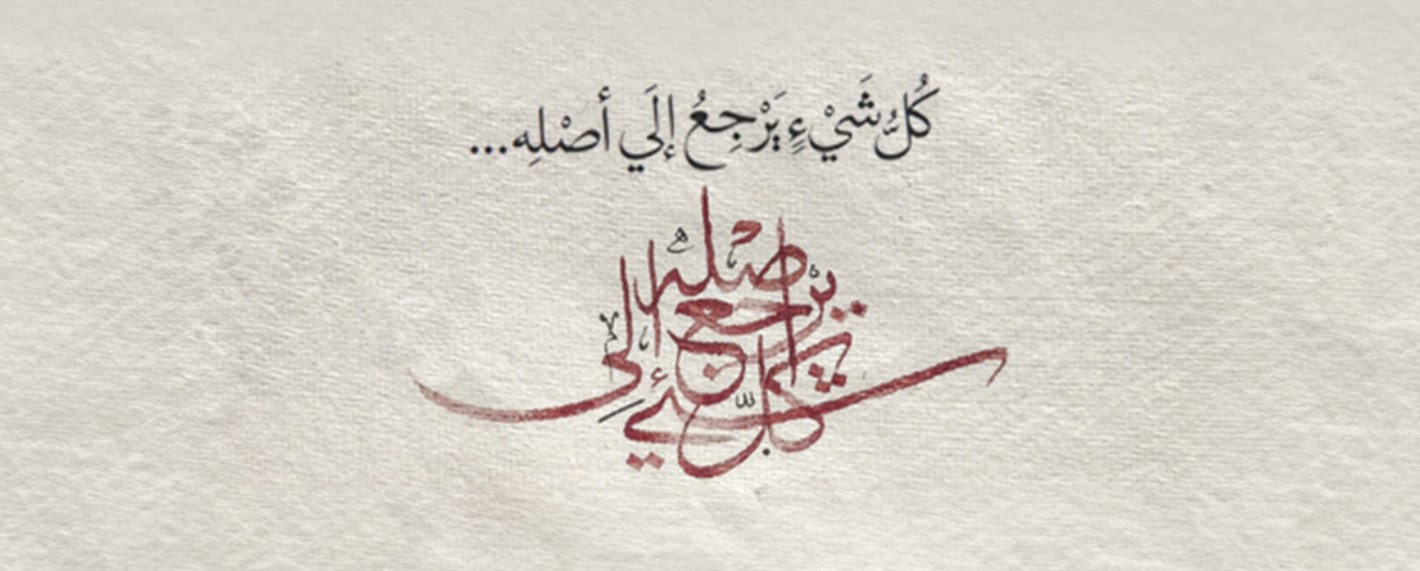 كُلُّ شَيْءٍ يَرْجِعُ إلَي أصْلِه...
كل شيئ يرجع إلى أصله